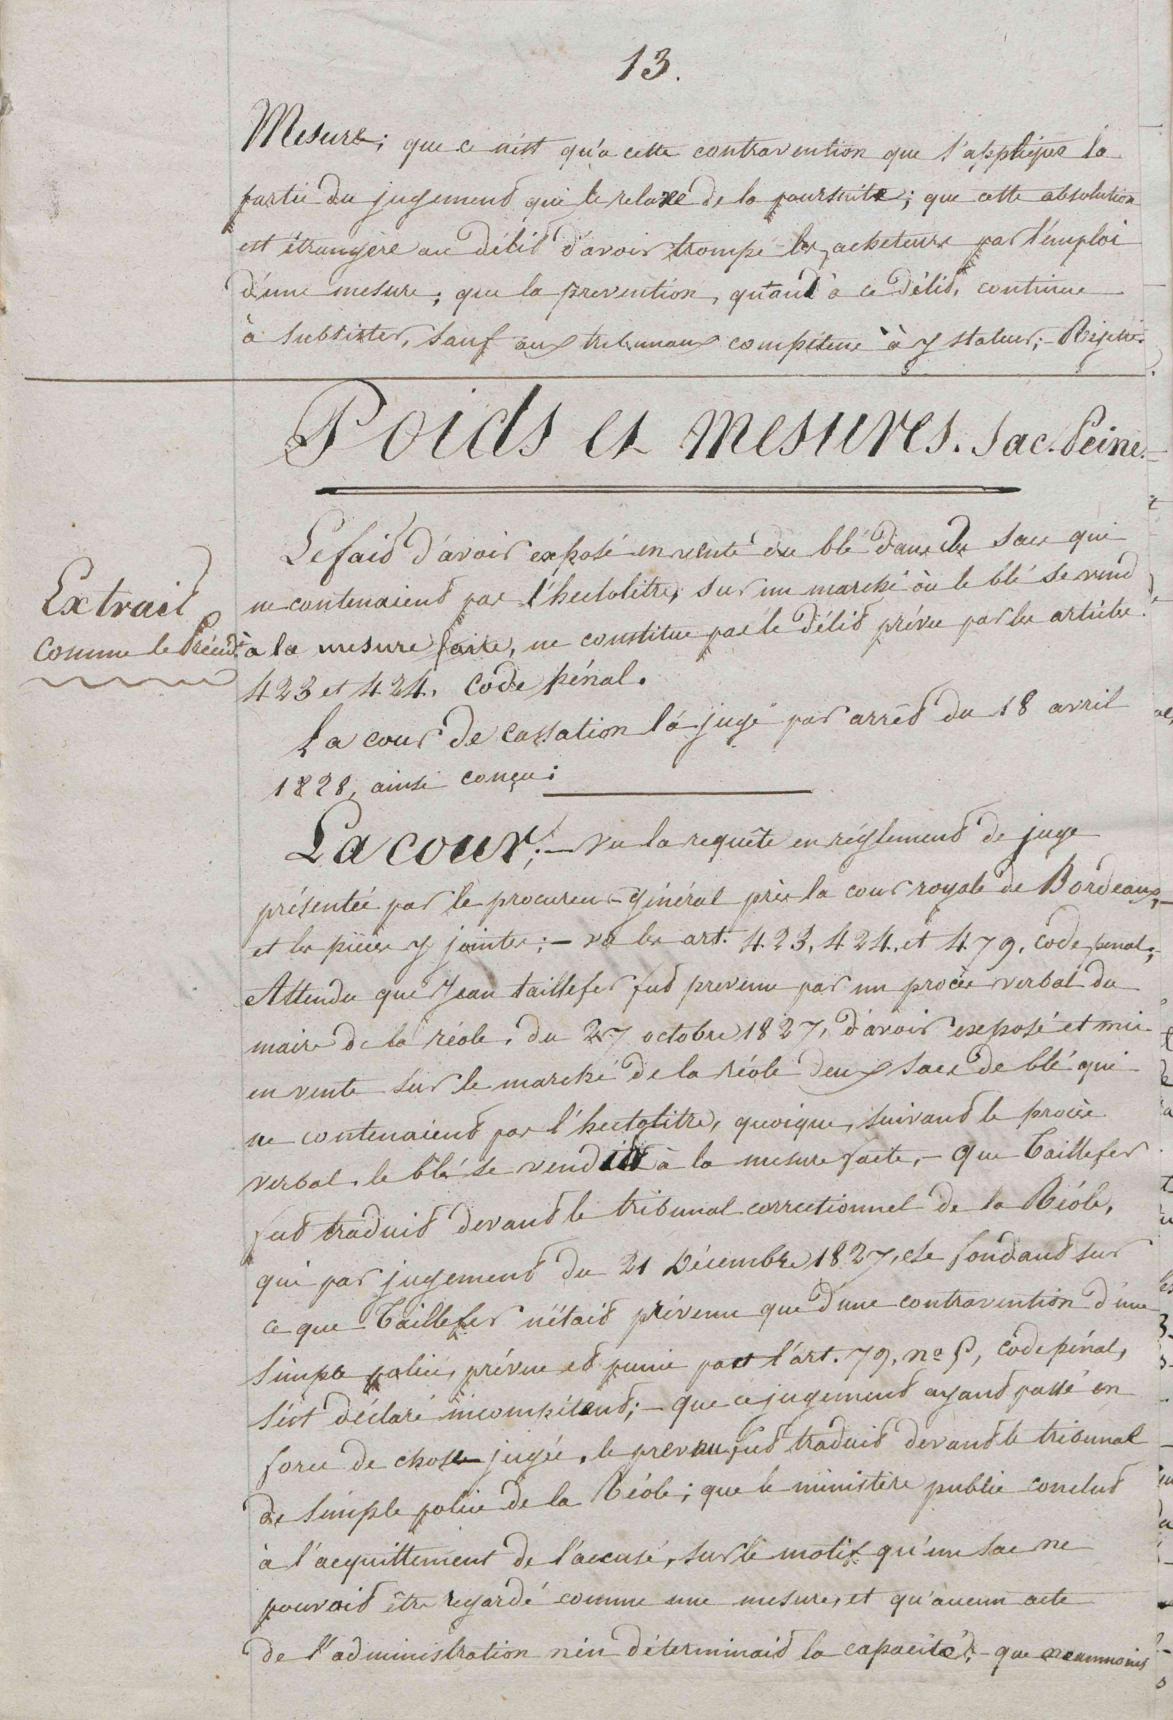 13.
Mesure; que ce n'est qu'a cette contravention que s'applique la
partie du jugement qui le relaxe de la poursuite; que cette absolution
est étrangère au délit d'avoir trompé les acheteurs par l'emploi
d'une mesure; que la prevention, quand à ce délit, continue
à subsister, sauf aux tribunaux compétens à y statuer; – Rejette.
Poids et mesures. Sac. Peine.
Le fait d'avoir exposé en vente du blé dans des sacs qui
ne contenaient pas l'hectolitre, sur un marché où le blé se vend
à la mesure faite, ne constitue pas le délit prévu par les articles
423 et 424. Code pénal.
Extrait
comme le Précédt
La cour de cassation l'a jugé par arrêt du 18 avril
1828, ainsi conçu:
La cour; – Vu la requête en réglement de juge
présentée par le procureur-général près la cour royale de Bordeaux,
et les pièces y jointes; – vu les art. 423, 424, et 479, code penal;
Attendu que Jean taillefer fut prevenu par un procès verbal du
maire de la réole, du 27 octobre 1827, d'avoir exposé et mis
en vente sur le marché de la réole deux sacs de blé qui
ne contenaient pas l'hectolitre, quoique, suivant le procès
verbal, le blé se vendit à la mesure faite, – Que Taillefer
fut traduit devant le tribunal correctionnel de la Réole,
qui par jugement du 21 Décembre 1827, se fondant sur
ce que Taillefer n'était prévenu que d'une contravention d'une
simple police, prévue et punie par l'art. 79, no 5, code pénal,
s'est déclaré incompétent; – que ce jugement ayant passé en
force de chose jugée, le prevenu fut traduit devant le tribunal
de simple police de la Réole; que le ministère public conclut
à l'acquittement de l'accusé, sur le motif qu'un sac ne
pouvait être regardé comme une mesure, et qu'aucun acte
de l'administration n'en déterminait la capacité; – que neammoins